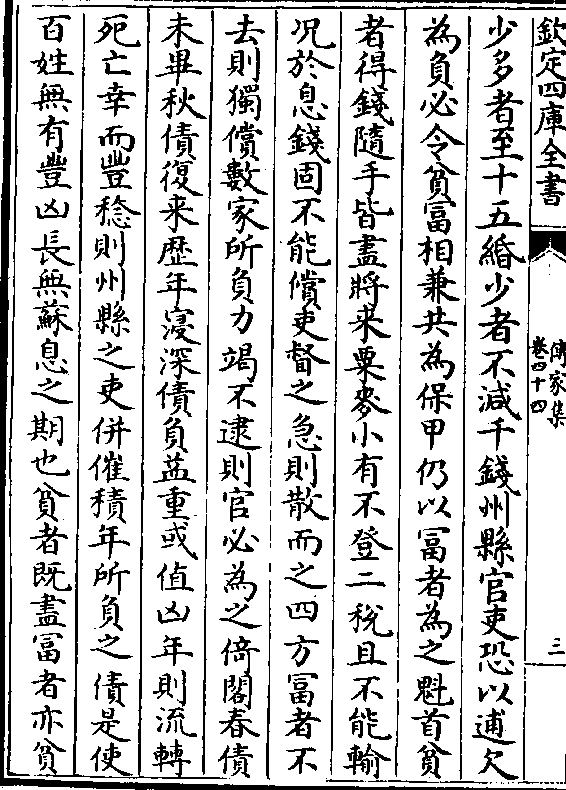 欽定四庫全書
傳家集
卷四十四
三
少多者至十五緡少者不減千錢州縣官吏恐以逋欠
為負必令貧富相兼共為保甲仍以富者為之魁首貧
者得錢隨手皆盡將来粟麥小有不登二稅且不能輸
况於息錢固不能償吏督之急則散而之四方富者不
去則獨償數家所負力竭不逮則官必為之倚閣春債
未畢秋債復来歴年寖深債負益重或值凶年則流轉
死亡幸而豐稔則州縣之吏併催積年所負之債是使
百姓無有豐凶長無蘇息之期也貧者既盡富者亦貧